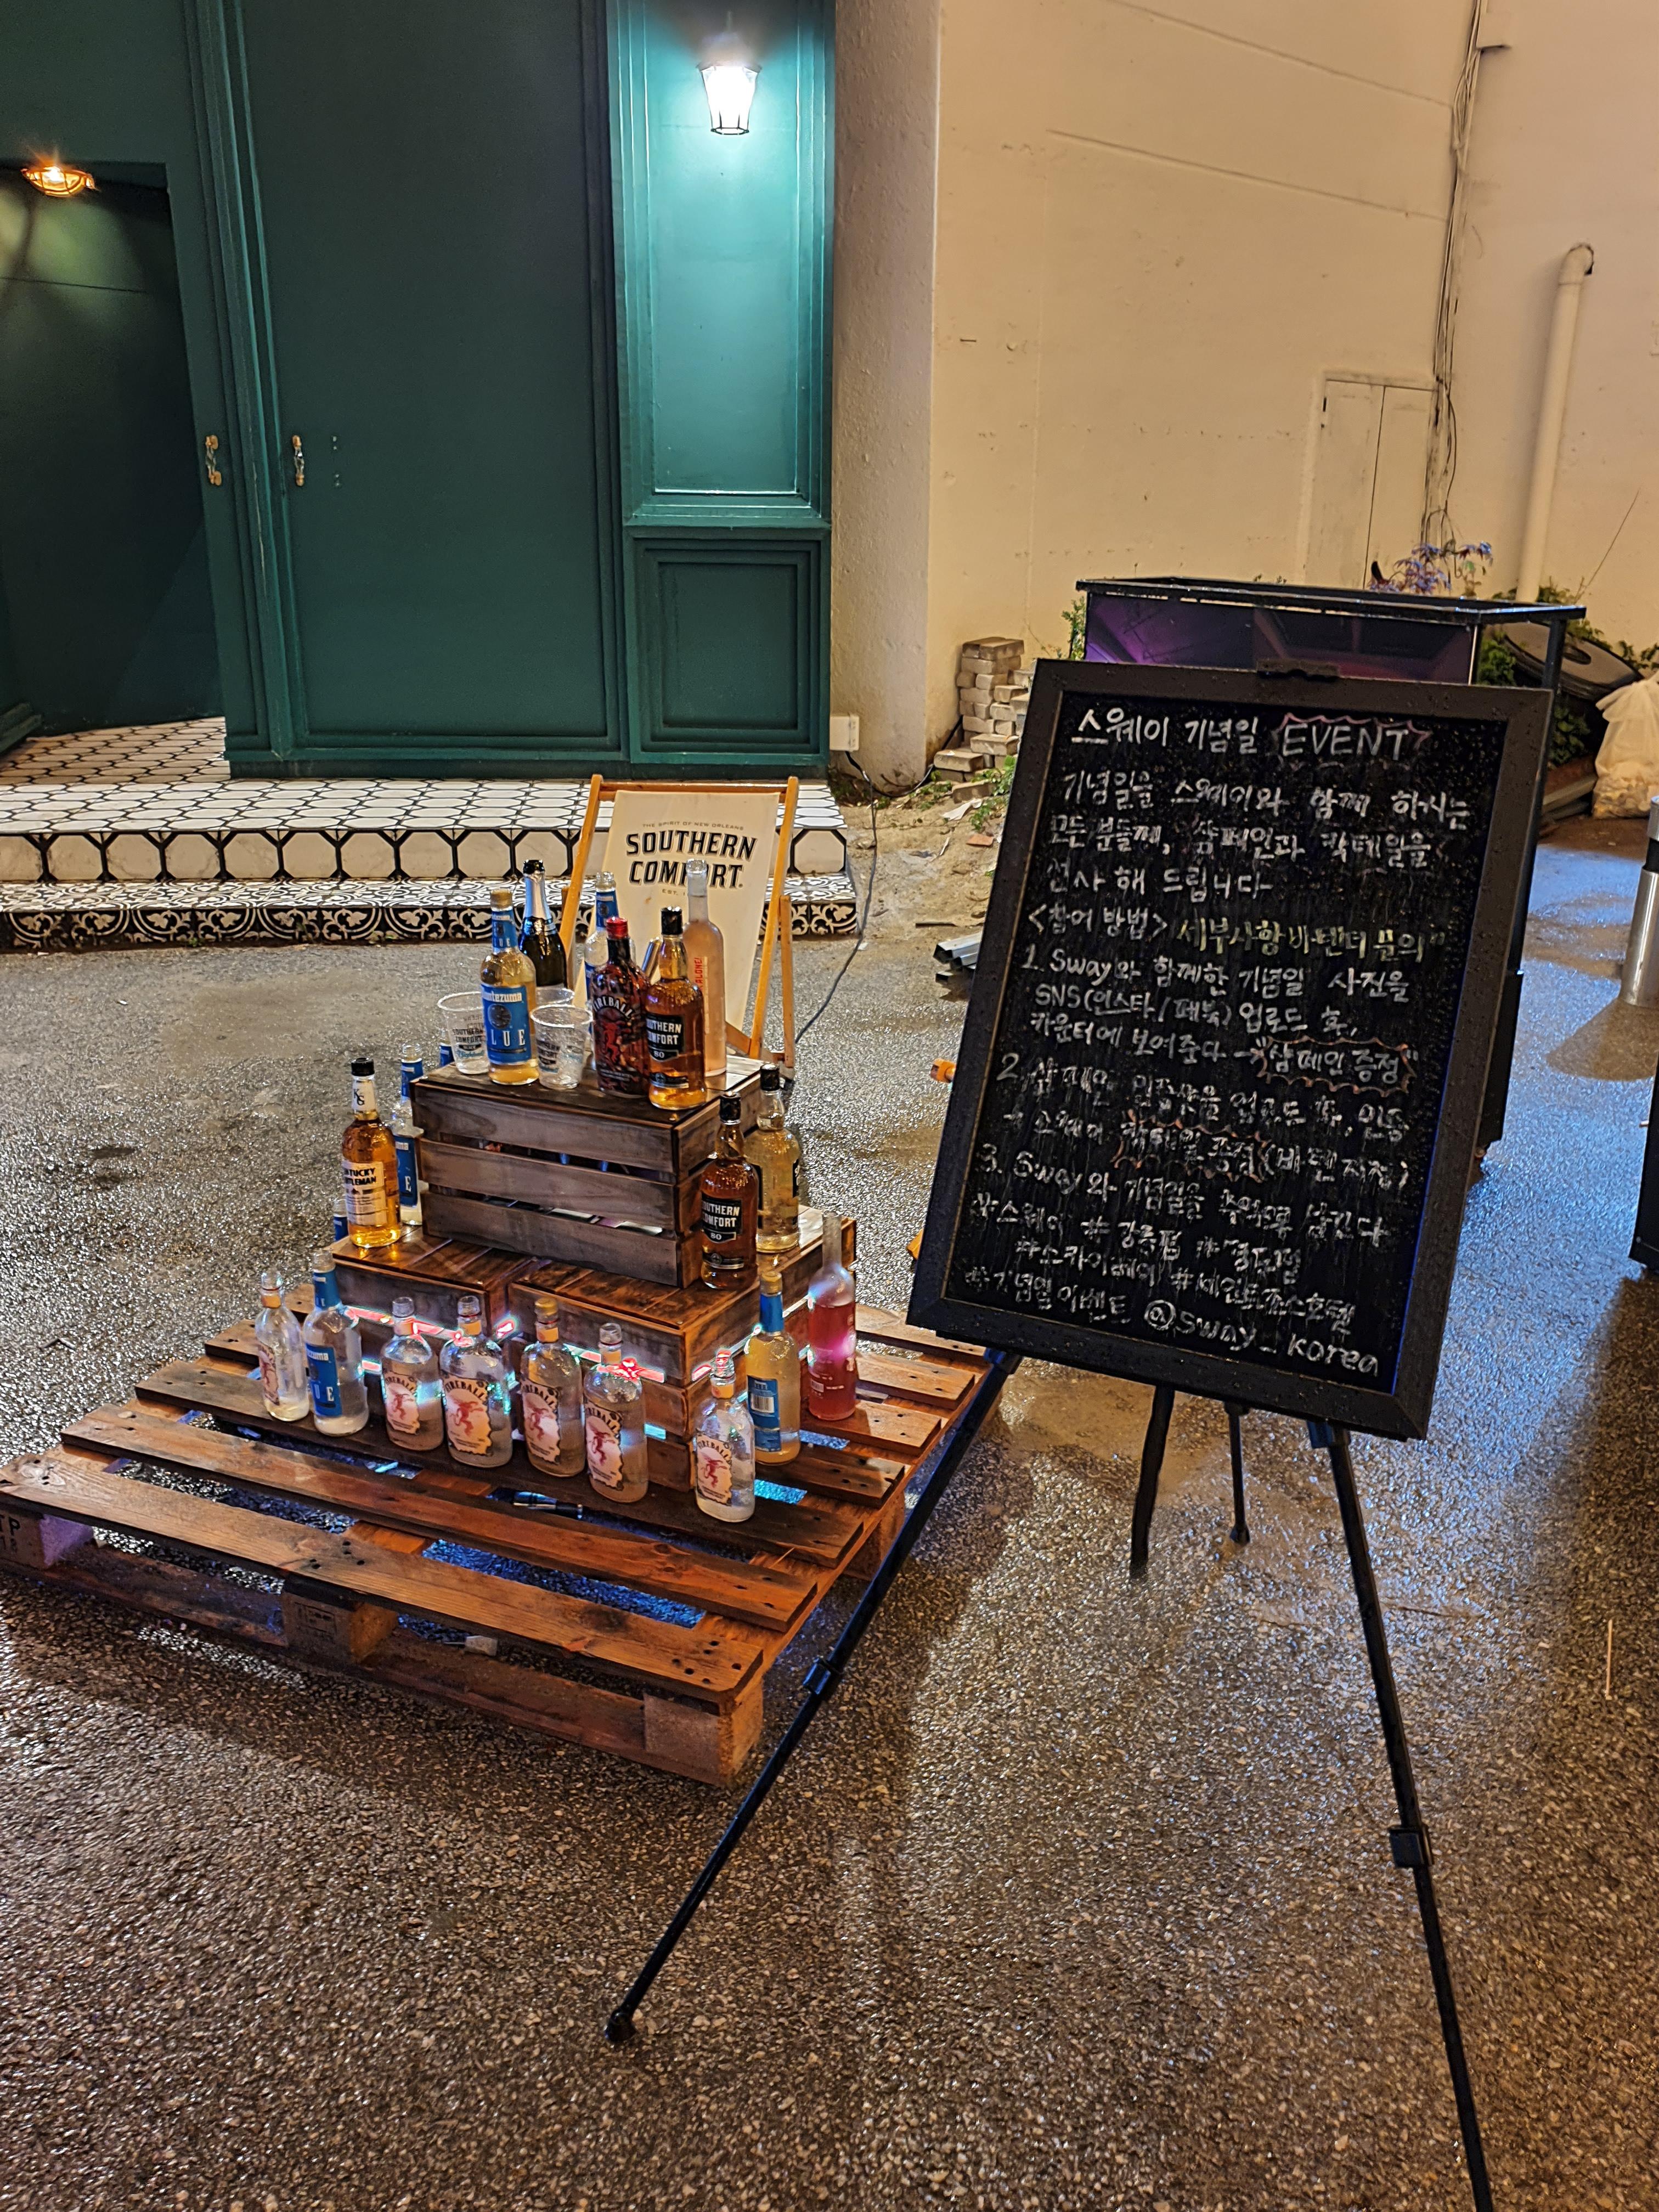 THE SPIRIT OF NEW ORLEANS
SOUTHERN
COMFORT.
스웨이 기념일 EVENT
기념일을 스웨이와 함께 하시는
모든분들께, 샴페인과 칵테일을
선사해 드립니다
<참여 방법> 세부사항 바텐더 문의
1. Sway와 함께한 기념일 사진을
SNS(인스타/페북) 업로드 후,
카운터에 보여준다 → "샴페인 증정"
2. 샴페인 인증샷을 업로드 후,
# 스웨이 칵테일 증정
3. Sway와 기념일을 추억으로 남긴다
#스웨이 #강릉점
#스카이베이
#기념일이벤트 @sway_korea
BLUE
FIREBALL
SOUTHERN
COMFORT
80
KS
KENTUCKY
GENTLEMAN
SOUTHERN
COMFORT
80
FIREBALL
FIREBALL
FIREBALL
FIREBALL
FIREBALL